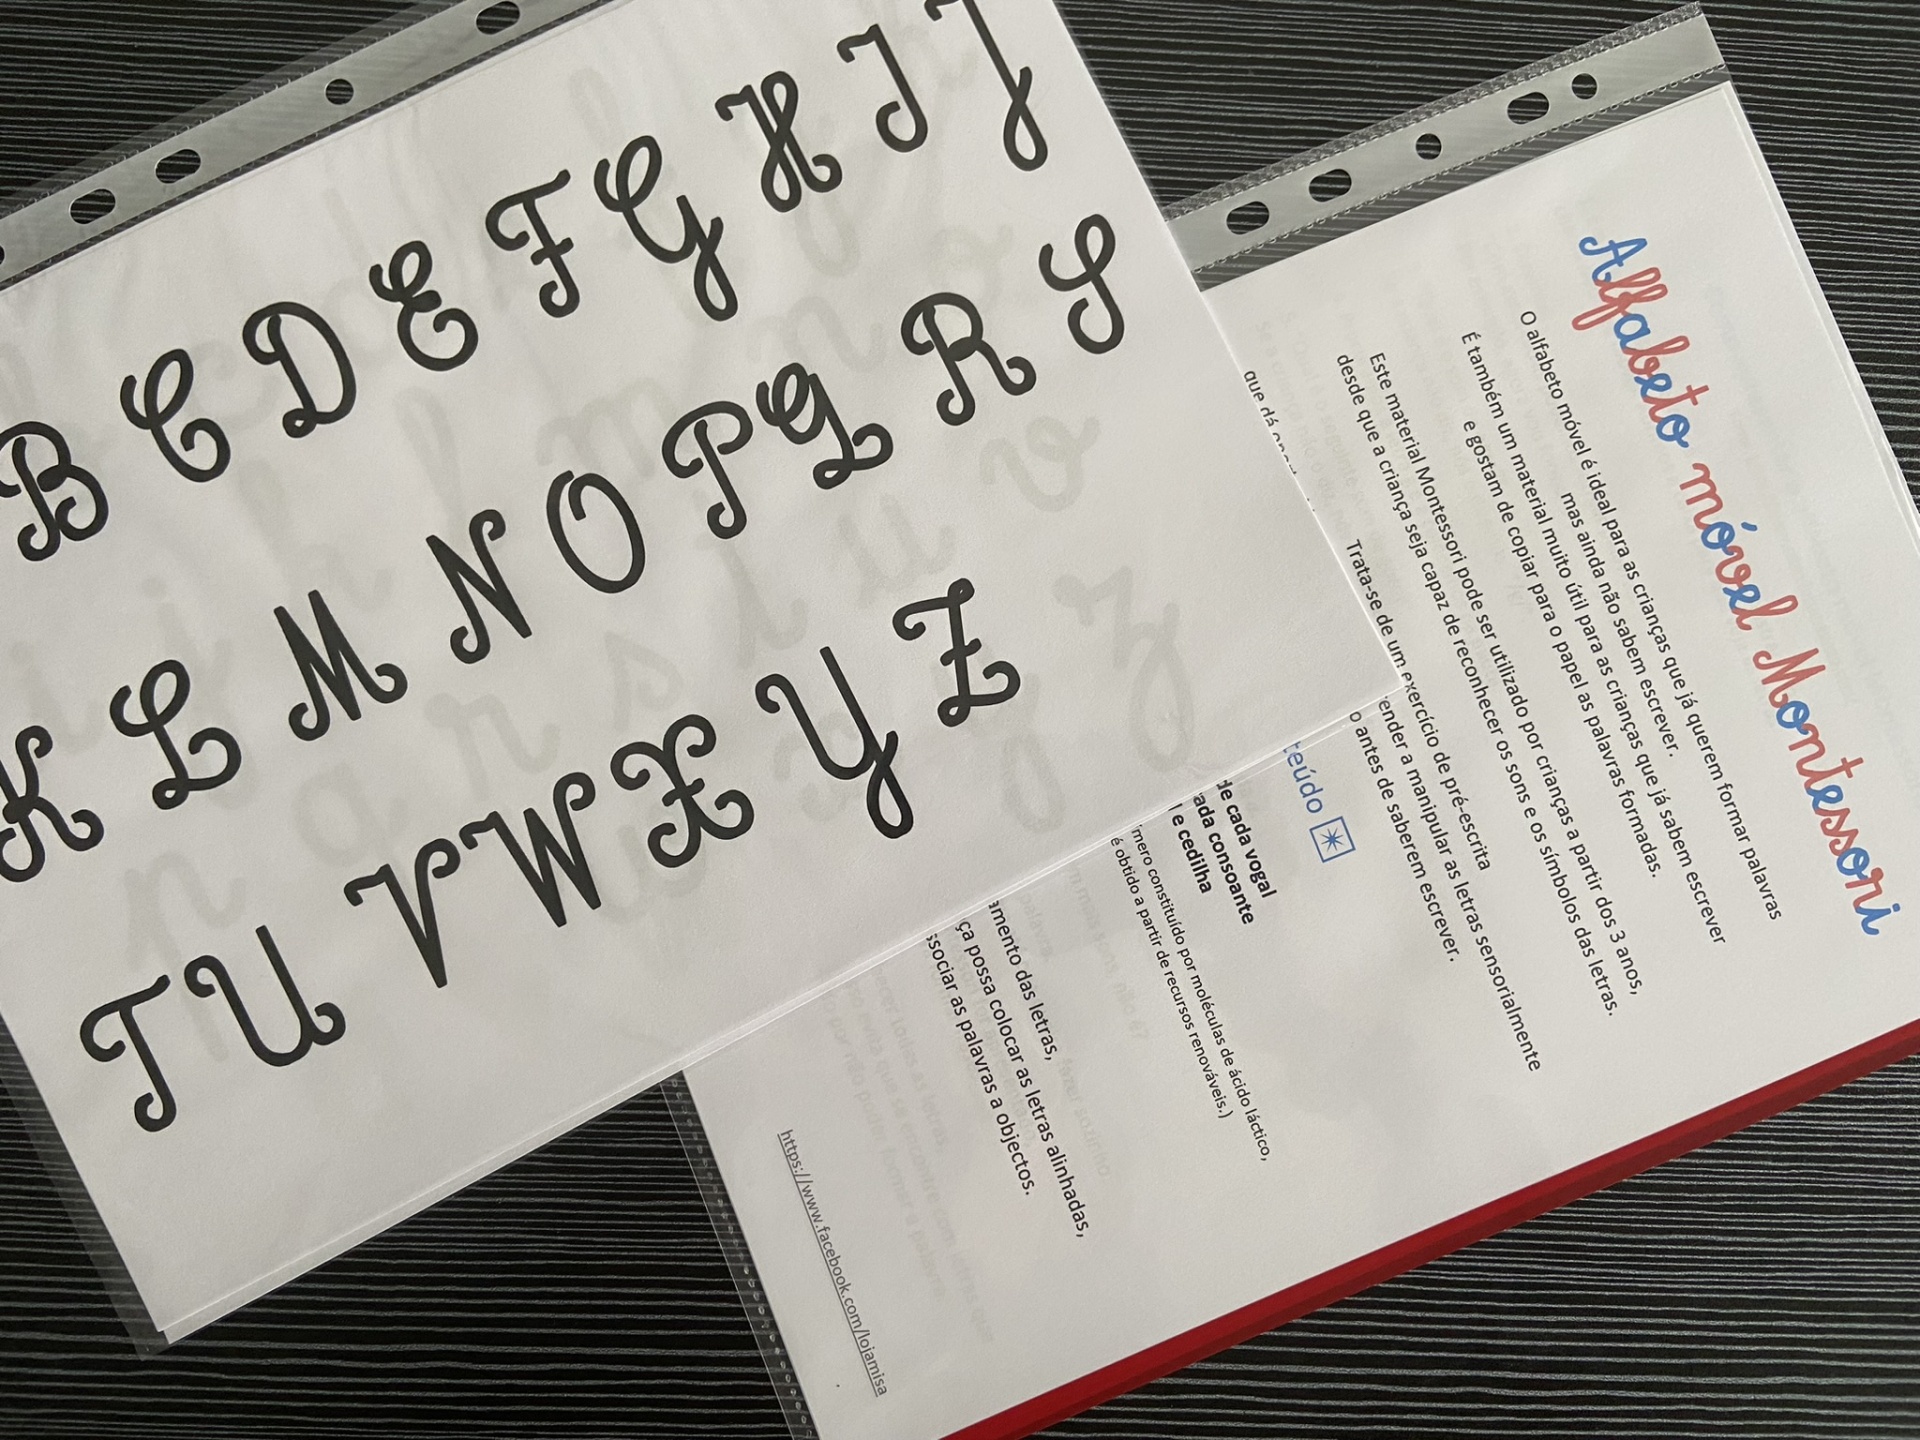 B C D E F G H I J
K L M N O P Q R S
T U V W X Y Z
Alfabeto móvel Montessori
O alfabeto móvel é ideal para as crianças que já querem formar palavras
mas ainda não sabem escrever.
É também um material muito útil para as crianças que já sabem escrever
e gostam de copiar para o papel as palavras formadas.
Este material Montessori pode ser utilizado por crianças a partir dos 3 anos,
desde que a criança seja capaz de reconhecer os sons e os símbolos das letras.
Trata-se de um exercício de pré-escrita
que dá ender a manipular as letras sensorialmente
o antes de saberem escrever.
teúdo
de cada vogal
ada consoante
l e cedilha
mero constituído por moléculas de ácido láctico,
é obtido a partir de recursos renováveis.)
amento das letras,
ça possa colocar as letras alinhadas,
ssociar as palavras a objectos.
https://www.facebook.com/lojamisa